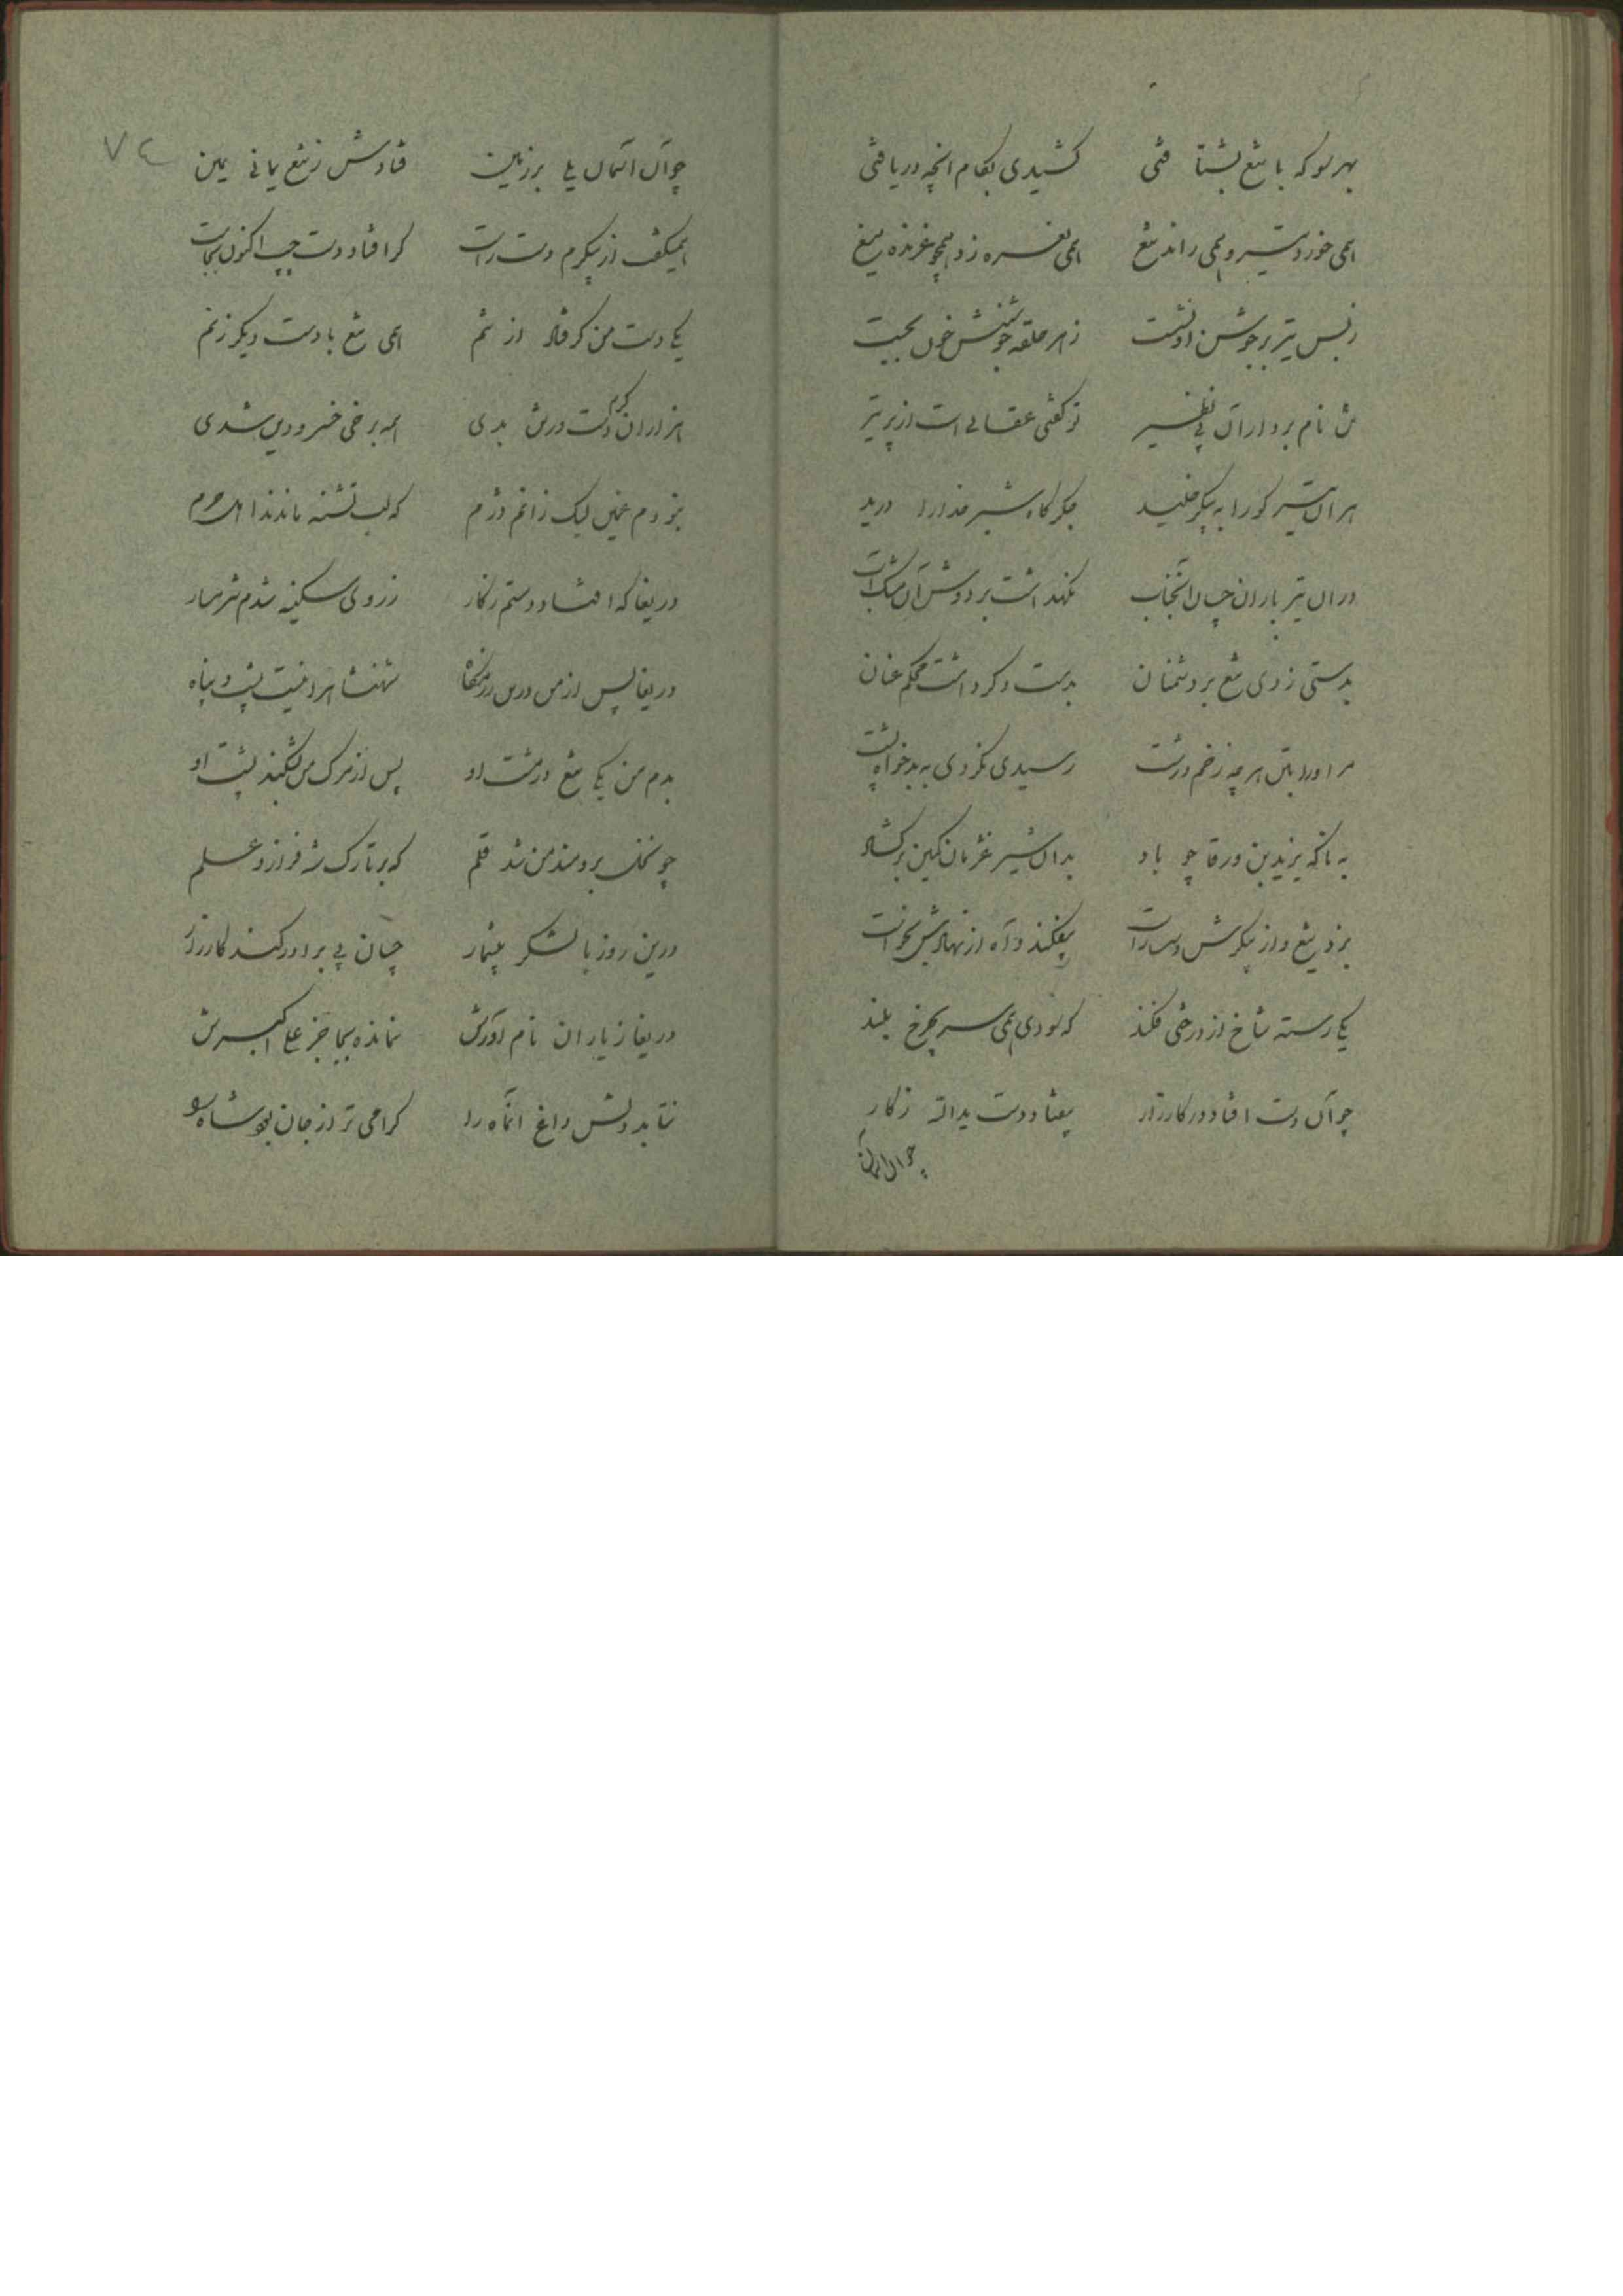 بهر سو که با تیغ بشتافتی کشیدی بکام انچه دریافتی
همی خورد تیر و همی راند تیغ همی نعره زد همچو غرنده میغ
ز بس تیر بر جوشن او نشست ز هر حلقه جوشنش خون بجست
تن نام بردار آن بی نظیر تو گفتی عقابی است از پر تیر
هر آن تیر کو را به پیکر خلید جگر گاه شیر خدا را درید
در آن تیر باران چسان آنجناب نگهداشت بر دوش آن مشک آب
بدستی زدی تیغ بر دشمنان بدست دگر داشت محکم عنان
مر او را بتن هر چه زخم درشت رسیدی نکردی به بدخواه پشت
به ناگه یزید بن ورقا چو باد بدان شیر غژمان کمین برگشاد
بزد تیغ و از پیکرش دست راست بیفکند و آه از نهادش نخواست
یکی رسته شاخ از درختی فکند که سودی همی سر بچرخ بلند
چو آن دست افتاد در کارزار بیفتاد دست یدالله ز کار
چو آن آسمان
۷۴
چو آن آسمان یلی بر زمین فتادش ز تیغ یمانی یمین
همیگفت از پیکرم دست راست گر افتاد دست چپ اکنون بجاست
یکی دست من گر فتاد از تنم همی تیغ با دست دیگر زنم
هزاران گرم دست در تن بدی همه برخی خسرو دین شدی
نبودم غمین لیک زانم دژم که لب تشنه ماندند اهل حرم
دریغا که افتاد دستم ز کار ز روی سکینه شدم شرمسار
دریغا پس از من درین رزمگاه شهنشاه را نیست پشت و پناه
بدم من یکی تیغ در مشت او پس از مرگ من بشکند پشت او
چو نخل برومند من شد قلم که بر تارک شه فرازد علم
درین روز با لشکر بیشمار چسان بی برادر کند کارزار
دریغا ز یاران نام آورش نمانده بجا جز علی اکبرش
نتابد دلش داغ آنماه را گرامی تر از جان بود شاه را